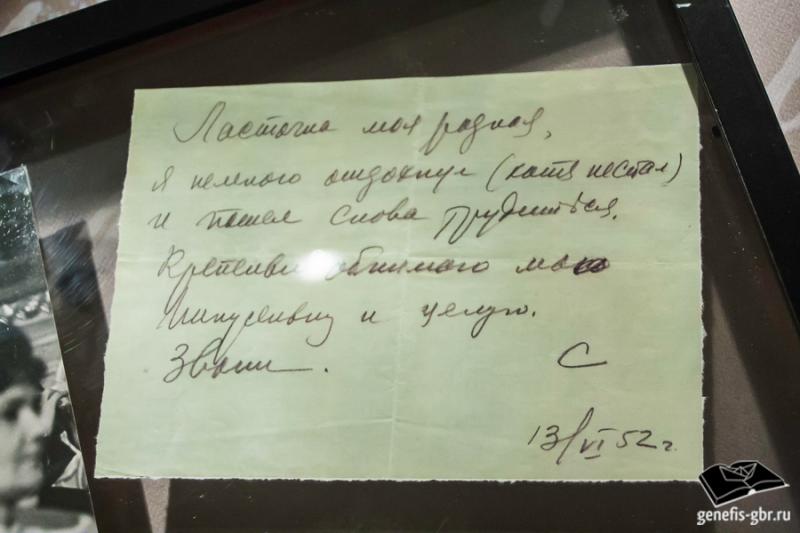 Ласточка моя родная,
я немного отдохнул (хотя не спал)
и пошел снова трудиться.
Крепенько обнимаю мою
и целую.
Звони. С
13/VI 52 г.
genefis-gbr.ru